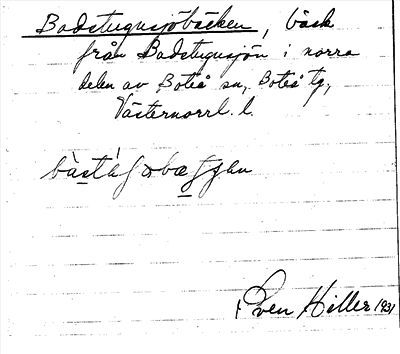 Badstugusjöbäcken, bäck
från Badstugusjön i norra
delen av Boteå sn, Boteå tg,
Västernorrl. l.
Sven Hiller 1931